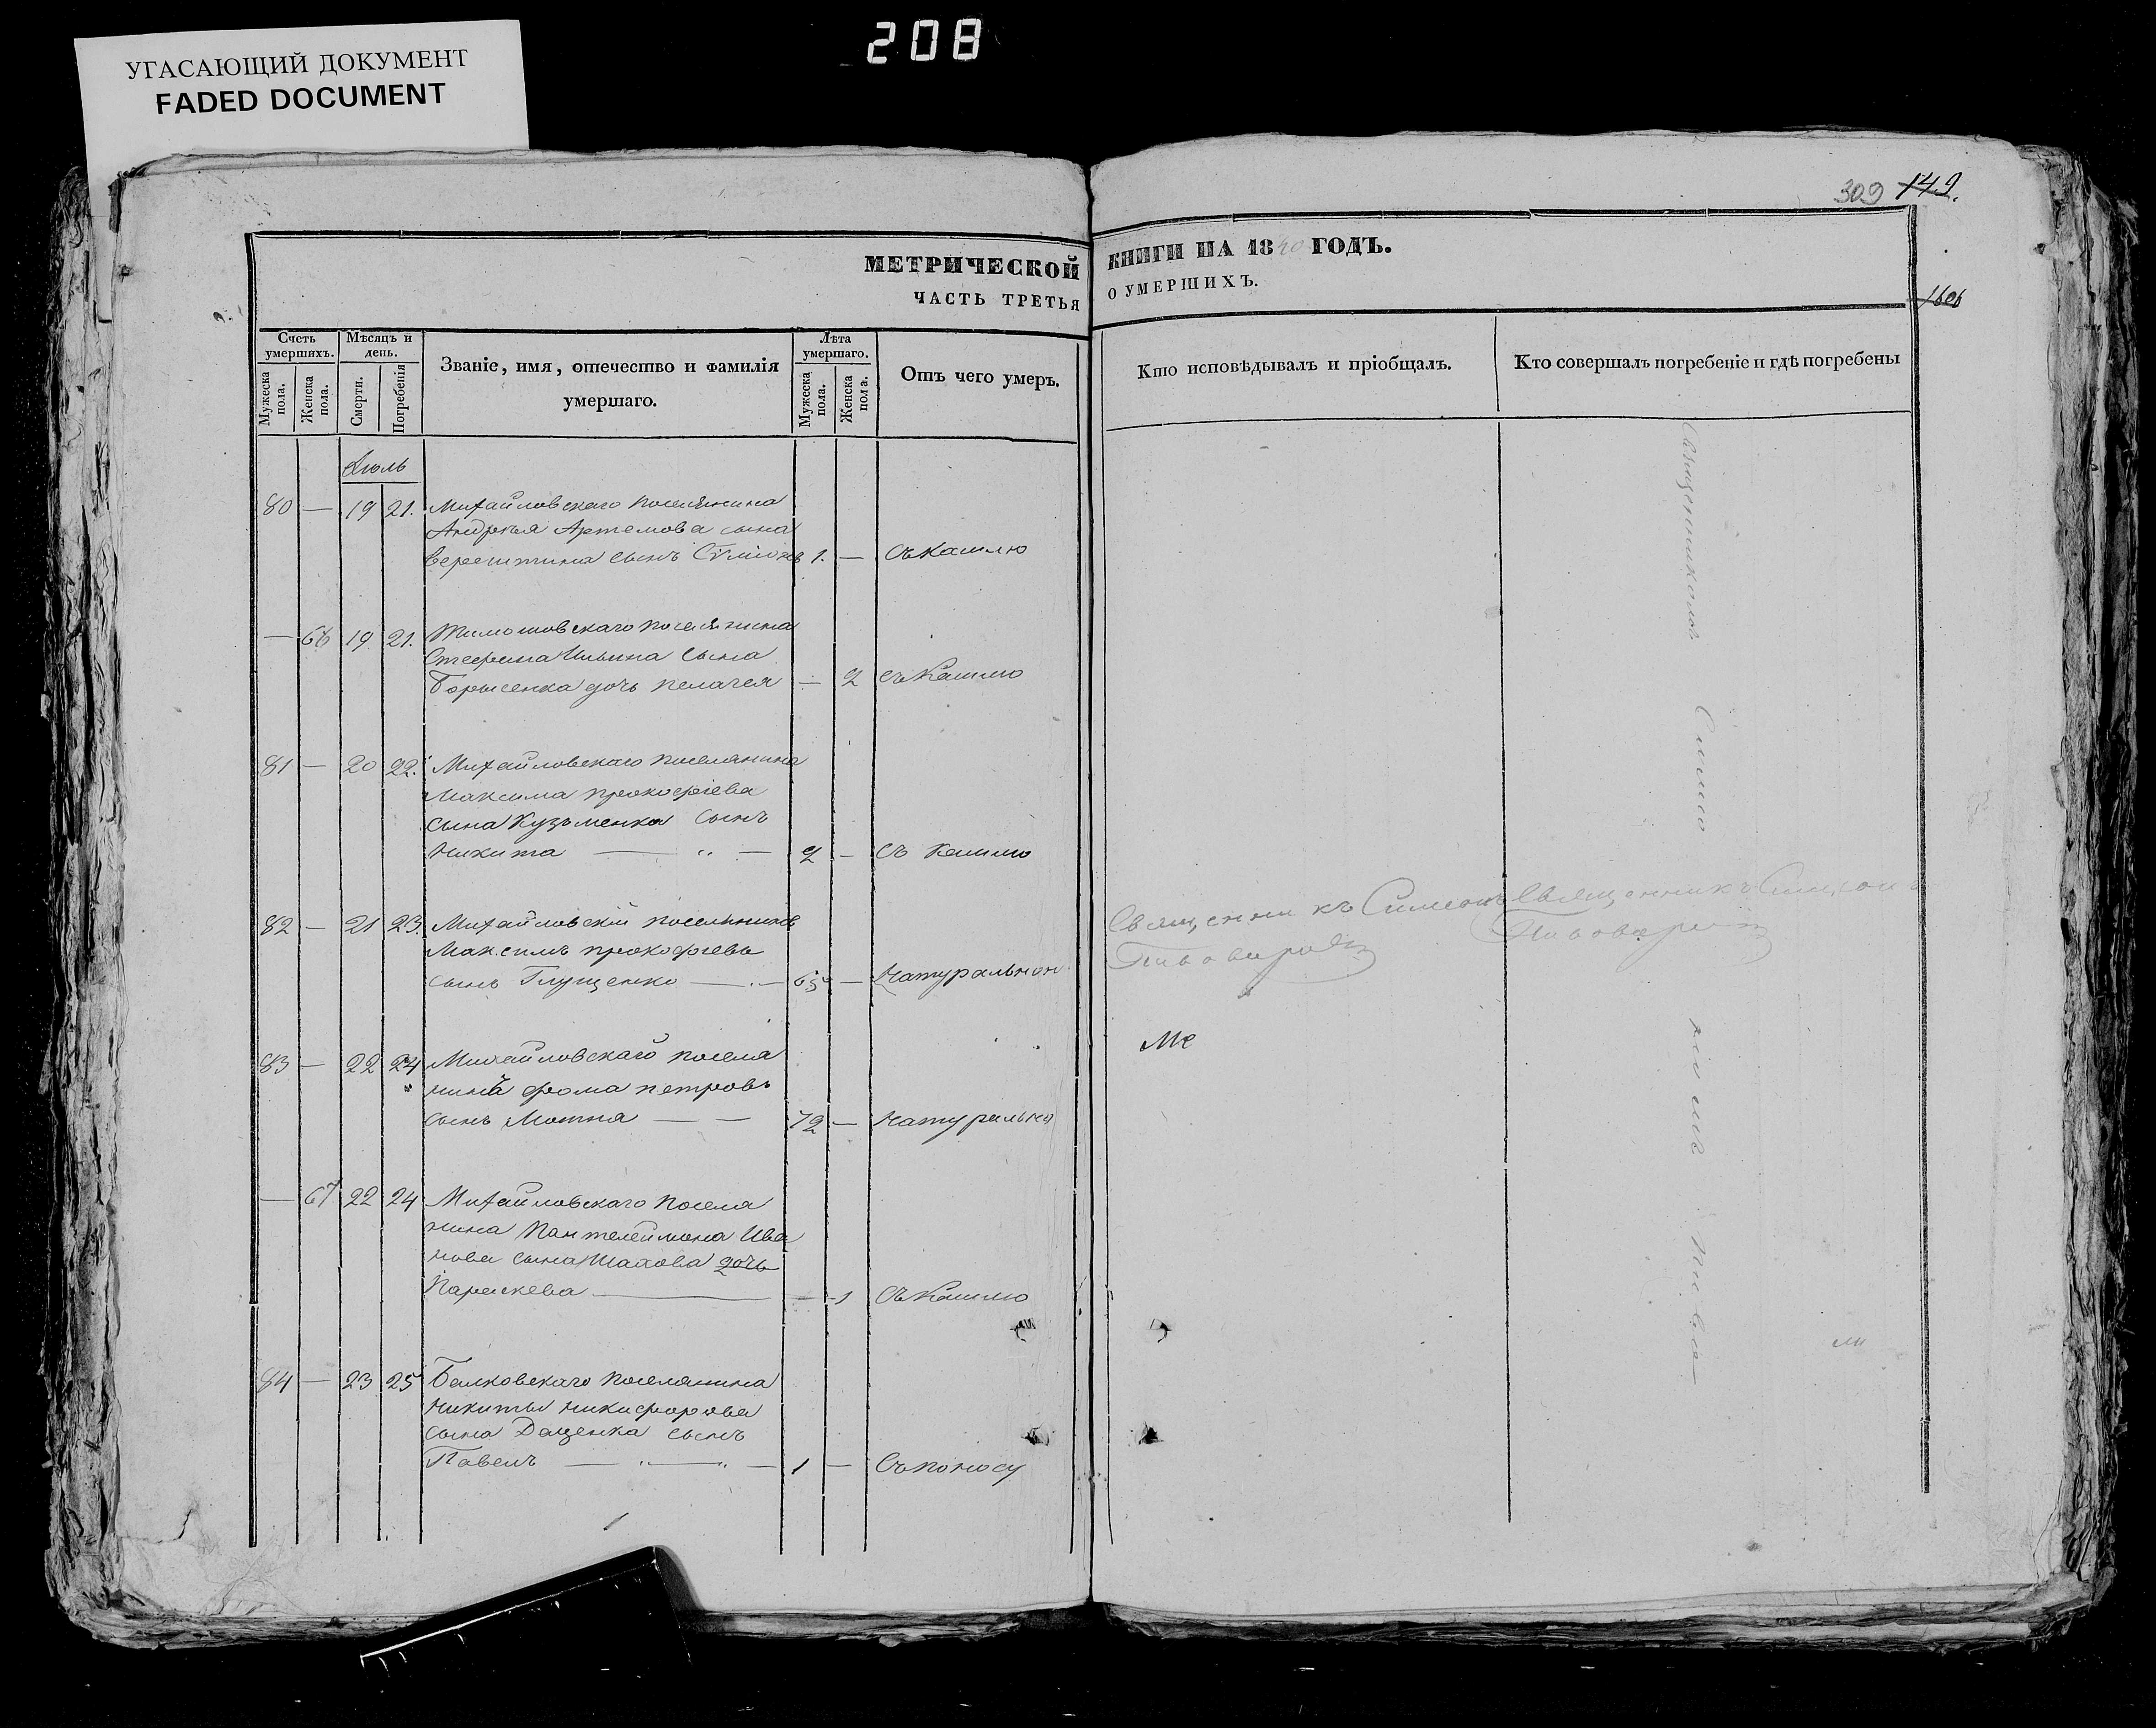 208
УГАСАЮЩИЙ ДОКУМЕНТ
FADED DOCUMENT
309 149.
МЕТРИЧЕСКОЙ КНИГИ НА 1840 ГОДЪ.
ЧАСТЬ ТРЕТЬЯ О УМЕРШИХЪ.
Счетъ умершихъ.
Мужеска пола.
Женска пола.
Мѣсяцъ и день.
Смерти.
Погребенія
Званіе, имя, отечество и фамилія умершаго.
Лѣта умершаго.
Мужеска пола.
Женска пола.
Отъ чего умеръ.
Кто исповѣдывалъ и пріобщалъ.
Кто совершалъ погребеніе и гдѣ погребены
Июль
80 — 19 21. Михайловскаго поселянина
Андрѣя Артемова сына
Верештина сынъ Сѵмеонъ 1. — Съ Кашлю
— 66 19 21. Тимошовскаго поселянина
Стефана Ильина сына
Борысенка дочь пелагея — 2 съ Кашлю
81 — 20 22. Михайловскаго поселянина
Максима прокофіева
сына Кузьменка сынъ
Никита — 2 — съ Кашлю
82 — 21 23. Михайловскій поселянинъ
Максимъ прокофіевъ
сынъ Глущенко — 65 — Натурально
Священникъ Симеонъ Священникъ Симеонъ
Пивоваровъ
83 — 22 24 Михайловскаго поселя
нинъ фома петровъ
сынъ Мотна — 72 — Натурально
— 67 22 24 Михайловскаго поселя
нина Пантелеймона Ива
нова сына Шахова дочь
Параскева — 1 Съ Кашлю
84 — 23 25 Балковскаго поселянина
Никиты никифорова
сына Даценка сынъ
Павелъ — 1 — Съ поносу
Священникомъ Симео